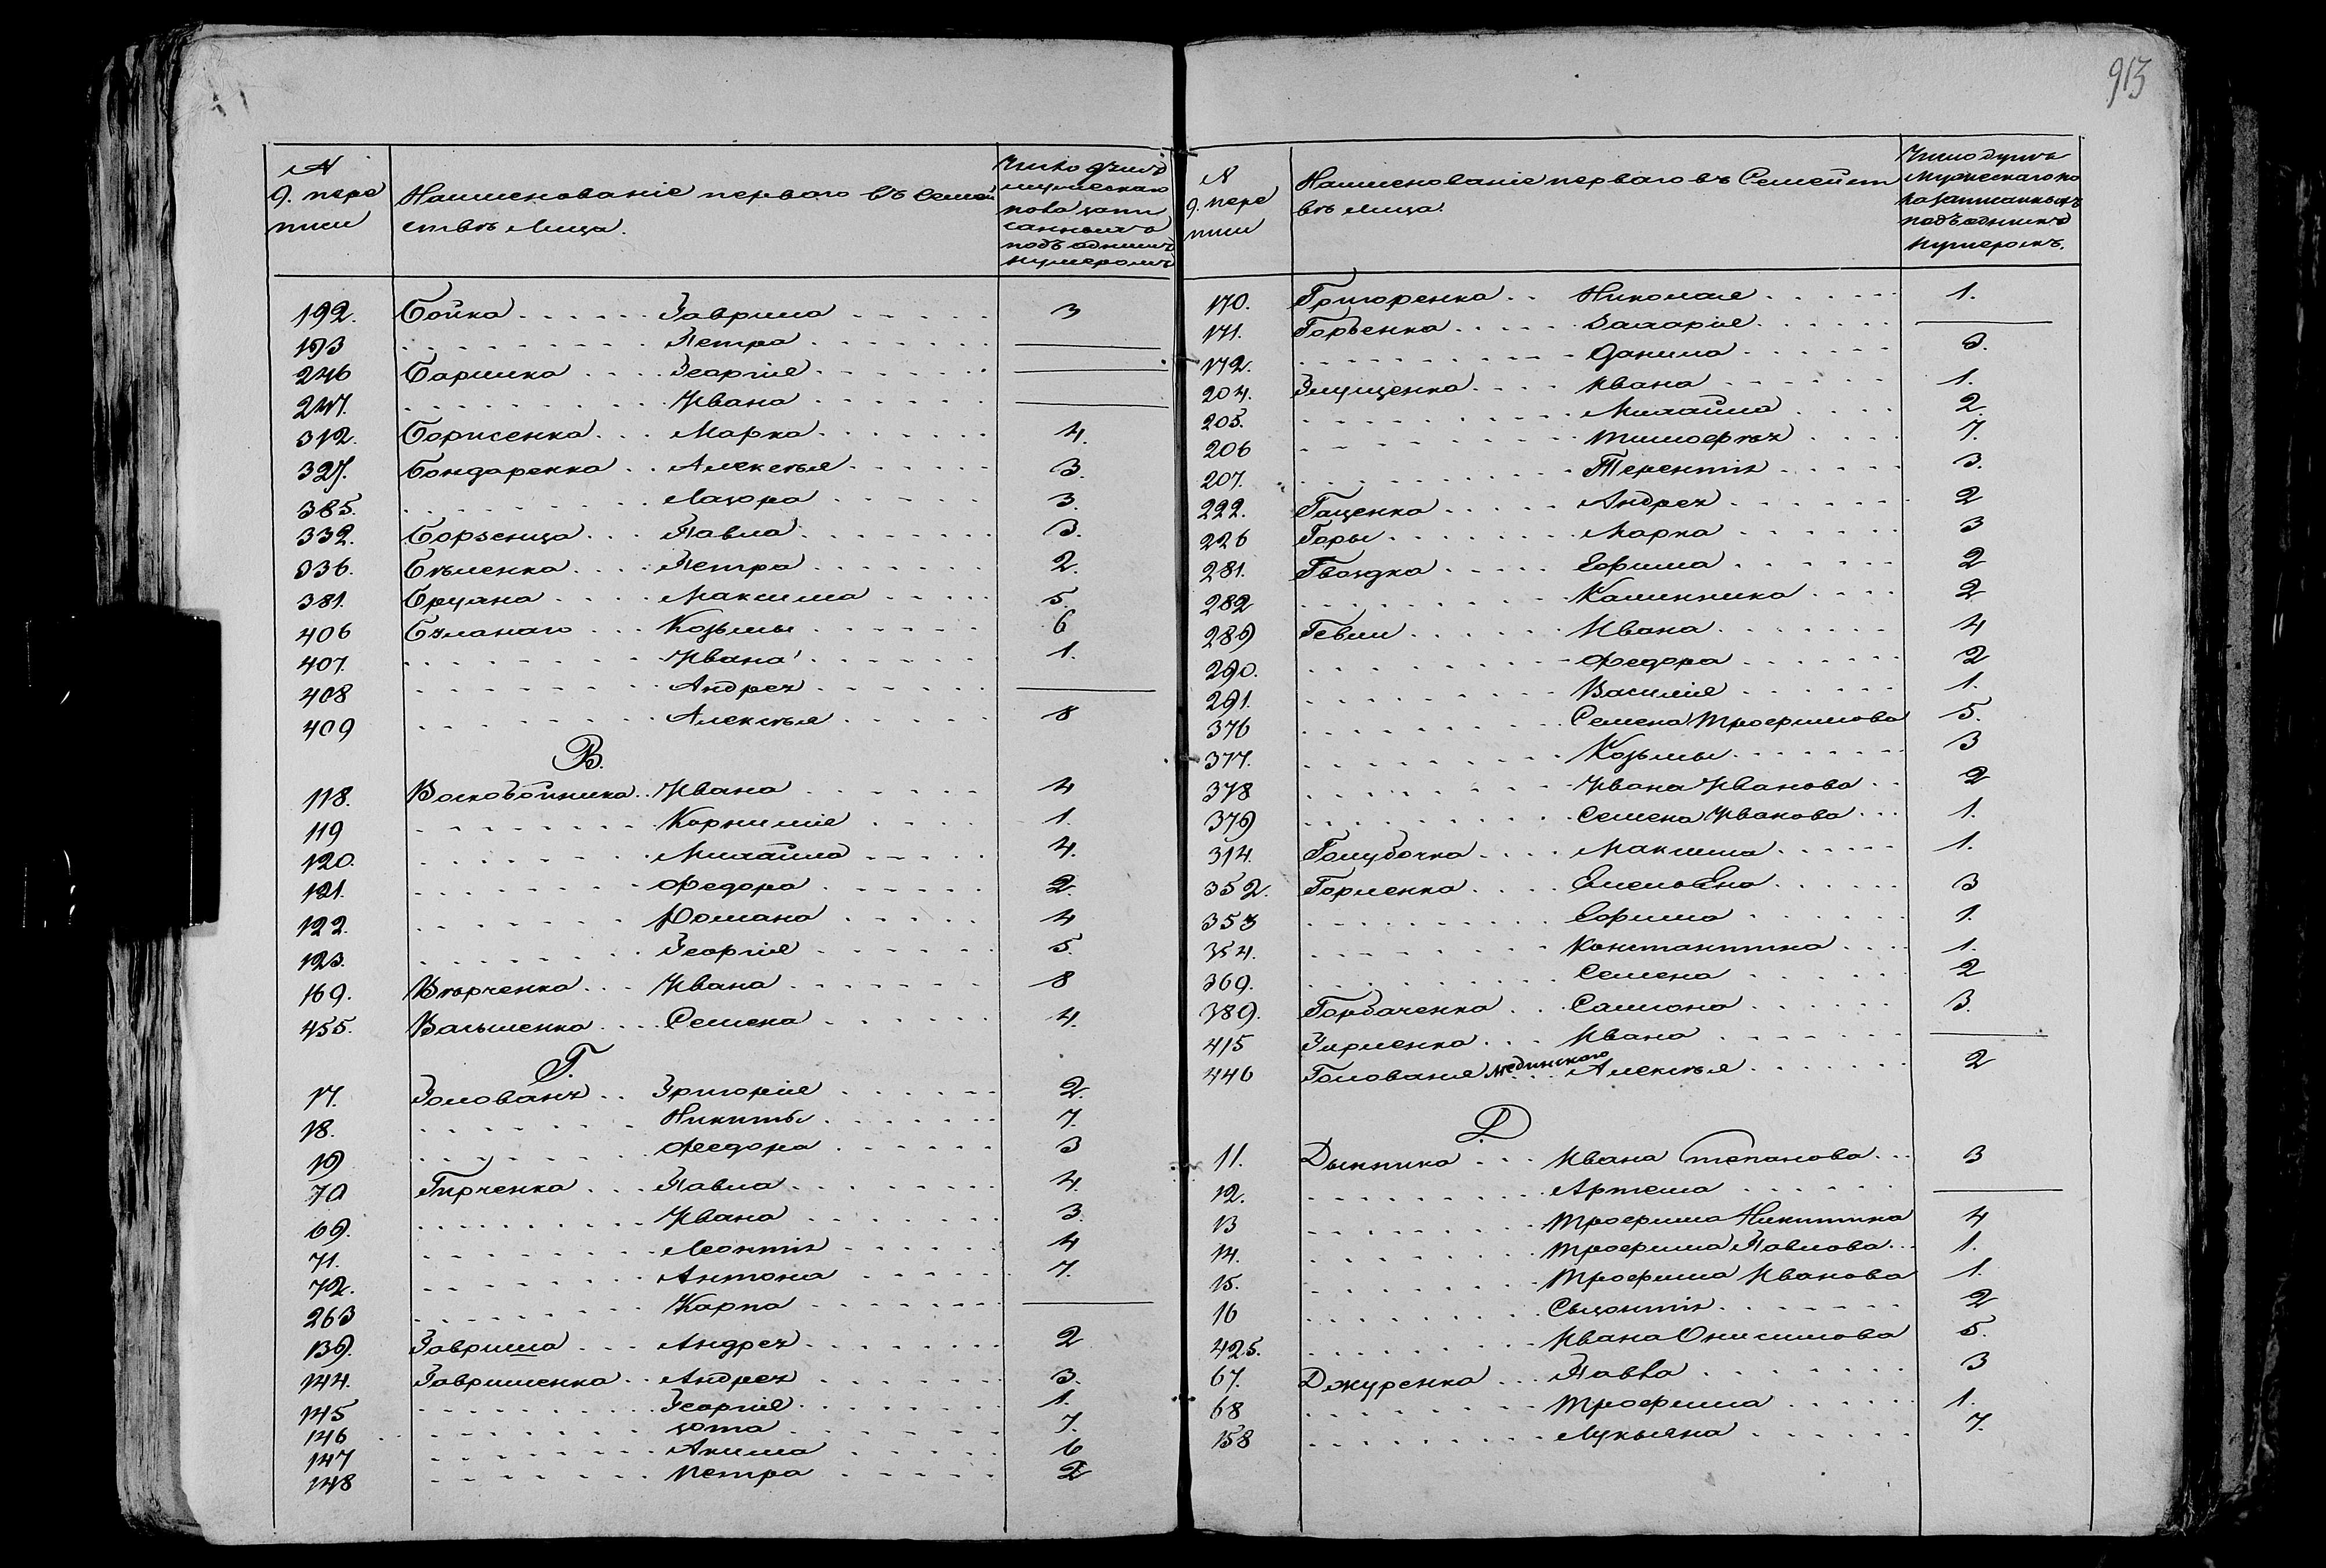 913
№
9. пере
писи
Наименованіе перваго въ Семей
ствѣ Лица.
Число душъ
мужескаго
пола запи
санныхъ
подъ однимъ
нумеромъ
192. Бойка Гаврила 3
193 Петра —
246 Барилка Георгія —
247. Ивана —
312. Борисенка Марка 4.
327. Бондаренка Алексѣя 3.
385. Лазара 3.
332. Борзенца Павла 3.
336. Бѣленка Петра 2.
381. Максима 5.
406 Козьмы 6
407. Ивана 1.
408 Андрея —
409 Алексѣя 8
В.
118. Воскобойника Ивана 4
119 Корнилія 1.
120. Михайла 4.
121. Федора 2.
122. Романа 4
123. Георгія 5.
169. Вѣрченка Ивана 8
455. Семена 4.
Г.
17. Голованя Григорія 2.
18. Никиты 7.
19 Федора 3
70 Гирченка Павла 4.
69. Ивана 3.
71. Леонтія 4
72. Антона 7.
263 Карпа —
139. Гавриша Андрея 2
144. Гавриленка Андрея 3.
145 Георгія 1.
146 Зота 7.
147 Акима 6
148 Петра 2
№
9. пере
писи
Наименованіе перваго въ Семейст
вѣ Лица.
Число душъ
Мужескаго по
ла записанныхъ
подъ однимъ
нумеромъ.
170. Григоренка Николая 1.
171. Горбенка Захарія —
172. Данила 3.
204. Глущенка Ивана 1.
205. Михайла 2.
206 Тимофѣя 7.
207. Терентія 3.
222. Гаценка Андрея 2
226 Горы Марка 3
281. Гвоздка Ефима 2
282 Калинника 2
289 Гевли Ивана 4
290. Федора 2
291. Василія 1.
376 Семена Трофимова 5.
377. Козьмы 3
378 Ивана Иванова 2
379 Семена Иванова 1.
314. Голубочка Максима 1.
352. Горленка Емельяна 3
353 Ефима 1.
354. Константина 1.
369. Семена 2
389. Горбаченка Самсона 3.
415 Гирленка Ивана —
446 Голованя Лединского Алексѣя 2
Д
11. Дынника Ивана Степанова 3
12. Артема —
13 Трофима Никитина 4
14. Трофима Павлова 1.
15. Трофима Иванова 1.
16 Созонтія 2
425. Ивана Онисимова 5.
67. Джуренка Павла 3
68 Трофима 1.
158 Лукьяна 7.